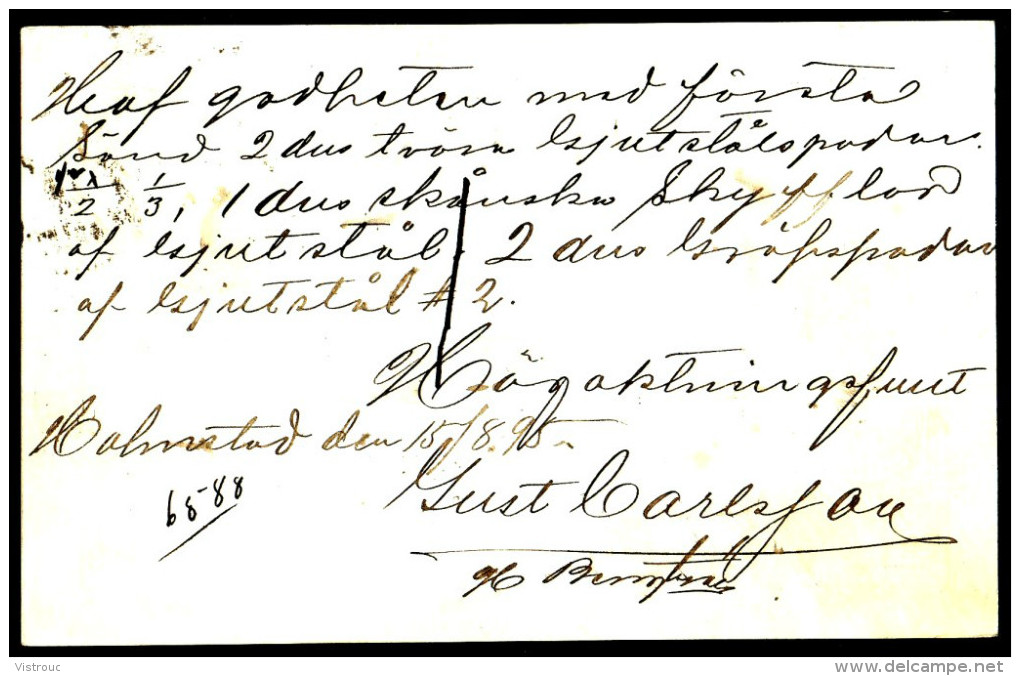 Haf godheten med första
sänd 2 dus tvära Gjutstålspadar.
1/2 1/3, 1 dus skånska Skyfflar
af Gjutstål. 2 dus Gräfspadar
af Gjutstål # 2.
Högaktningsfullt
Halmstad den 15/8.95
Gust Carlsson
68-88
Vistrouc
www.delcampe.net